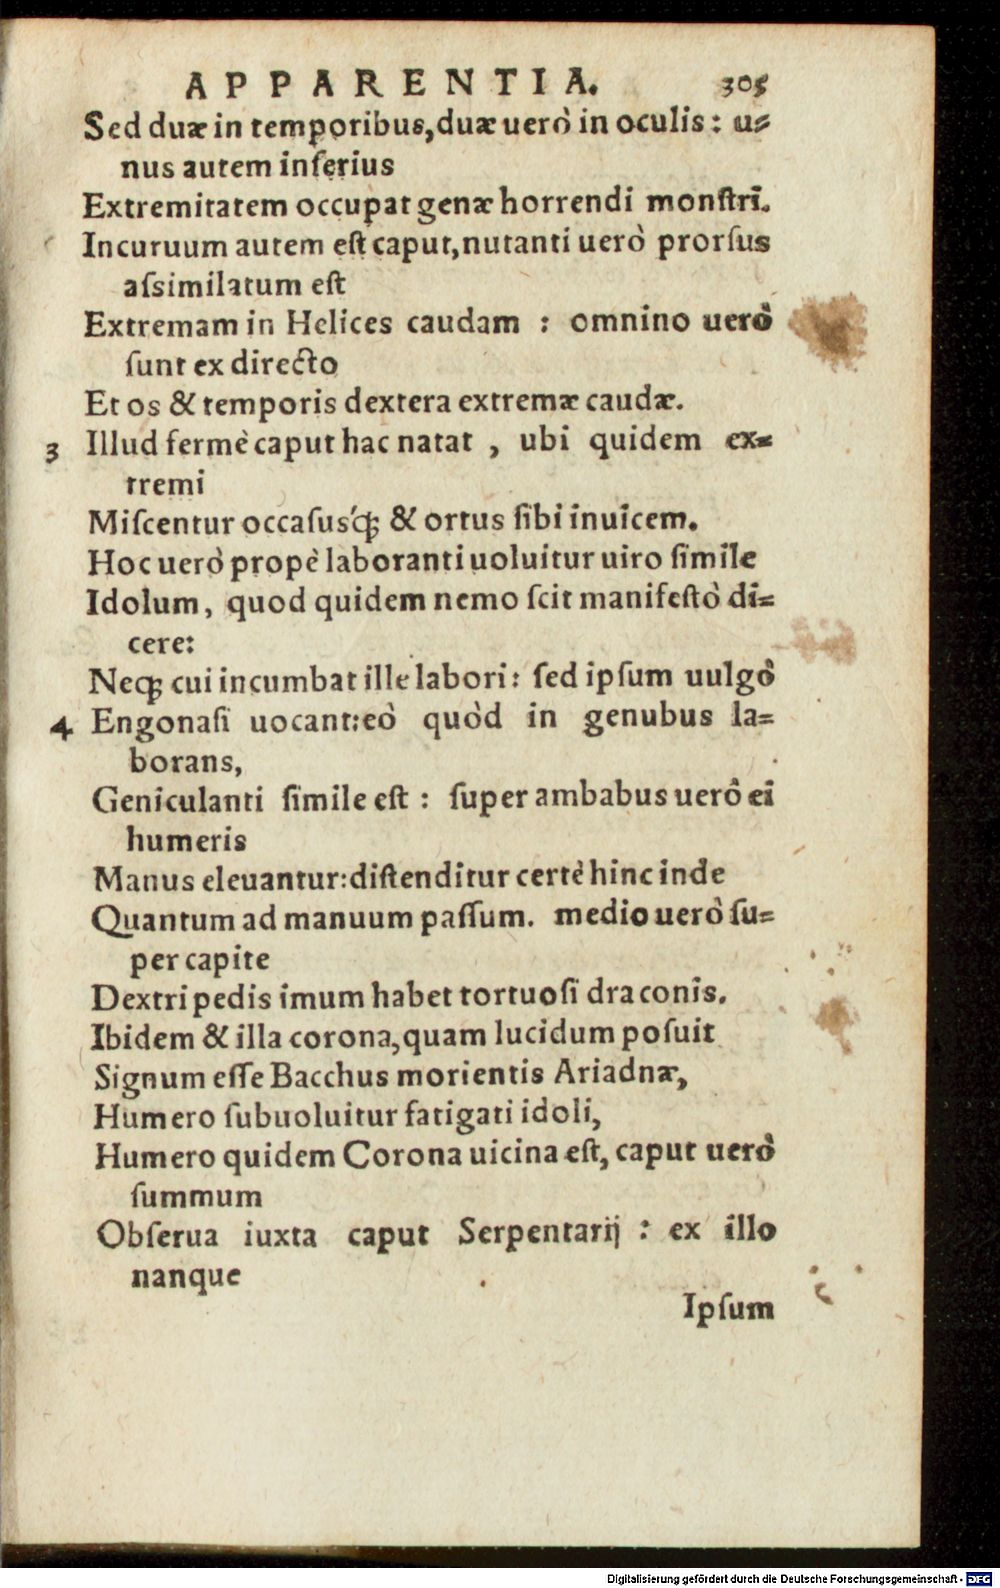 APPARENTIA. 305
Sed duæ in temporibus, duæ uerò in oculis: u=
nus autem inferius
Extremitatem occupat genæ horrendi monſtri.
Incuruum autem eſt caput, nutanti uerò prorſus
aſsimilatum eſt
Extremam in Helices caudam : omnino uerò
ſunt ex directo
Et os & temporis dextera extremæ caudæ.
3 Illud fermè caput hac natat , ubi quidem ex=
tremi
Miſcentur occaſusq́ꝫ & ortus ſibi inuicem.
Hoc uerò propè laboranti uoluitur uiro ſimile
Idolum, quod quidem nemo ſcit manifeſtò di=
cere:
Neqꝫ cui incumbat ille labori: ſed ipſum uulgò
4 Engonaſi uocant: eò quòd in genubus la=
borans,
Geniculanti ſimile eſt : ſuper ambabus uerò ei
humeris
Manus eleuantur: diſtenditur certè hinc inde
Quantum ad manuum paſſum. medio uerò ſu=
per capite
Dextri pedis imum habet tortuoſi draconis.
Ibidem & illa corona, quam lucidum poſuit
Signum eſſe Bacchus morientis Ariadnæ,
Humero ſubuoluitur fatigati idoli,
Humero quidem Corona uicina eſt, caput uerò
ſummum
Obſerua iuxta caput Serpentarij : ex illo
nanque
Ipſum
Digitalisierung gefördert durch die Deutsche Forschungsgemeinschaft - DFG